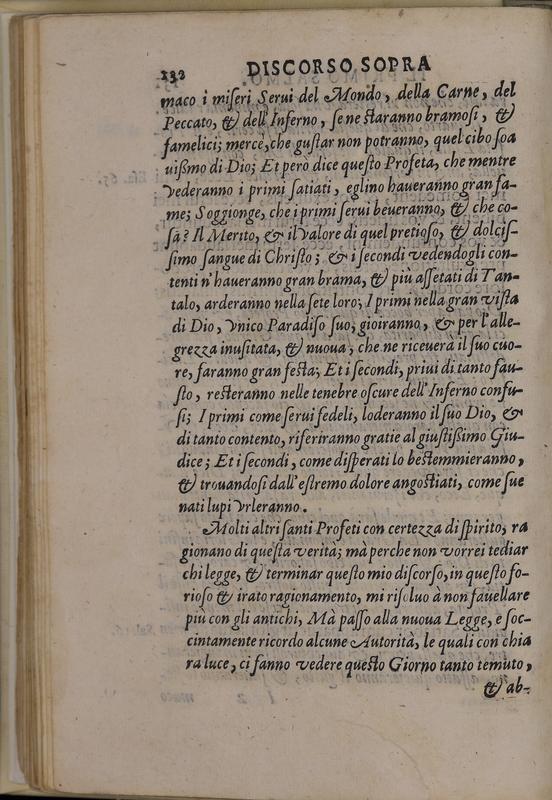 132 DISCORSO SOPRA
maco i miseri Serui del Mondo, della Carne, del
Peccato, & dell'Inferno, se ne staranno bramosi, &
famelici; mercè, che gustar non potranno, quel cibo soa
uißmo di Dio; Et però dice questo Profeta, che mentre
vederanno i primi satiati, eglino haueranno gran fa-
me; Soggionge, che i primi serui beueranno, & che co-
sa? Il Merito, & il valore di quel pretioso, & dolcis-
simo sangue di Christo; & i secondi vedendogli con-
tenti n'haueranno gran brama, & più assetati di Tan-
talo, arderanno nella sete loro; I primi nella gran vista
di Dio, vnico Paradiso suo, gioiranno, & per l'alle-
grezza inusitata, & nuoua, che ne riceuerà il suo cuo-
re, faranno gran festa; Et i secondi, priui di tanto fau-
sto, resteranno nelle tenebre oscure dell'Inferno confu-
si; I primi come serui fedeli, loderanno il suo Dio, &
di tanto contento, riferiranno gratie al giustißimo Giu-
dice; Et i secondi, come disperati lo bestemmieranno,
& trouandosi dall'estremo dolore angostiati, come sue
nati lupi vrleranno.
Molti altri santi Profeti con certezza di spirito, ra
gionano di questa verità; mà perche non vorrei tediar
chi legge, & terminar questo mio discorso, in questo fo-
rioso & irato ragionamento, mi risoluo à non fauellare
più con gli antichi, Mà passo alla nuoua Legge, e soc-
cintamente ricordo alcune Autorità, le quali con chia
ra luce, ci fanno vedere questo Giorno tanto temuto,
& ab-